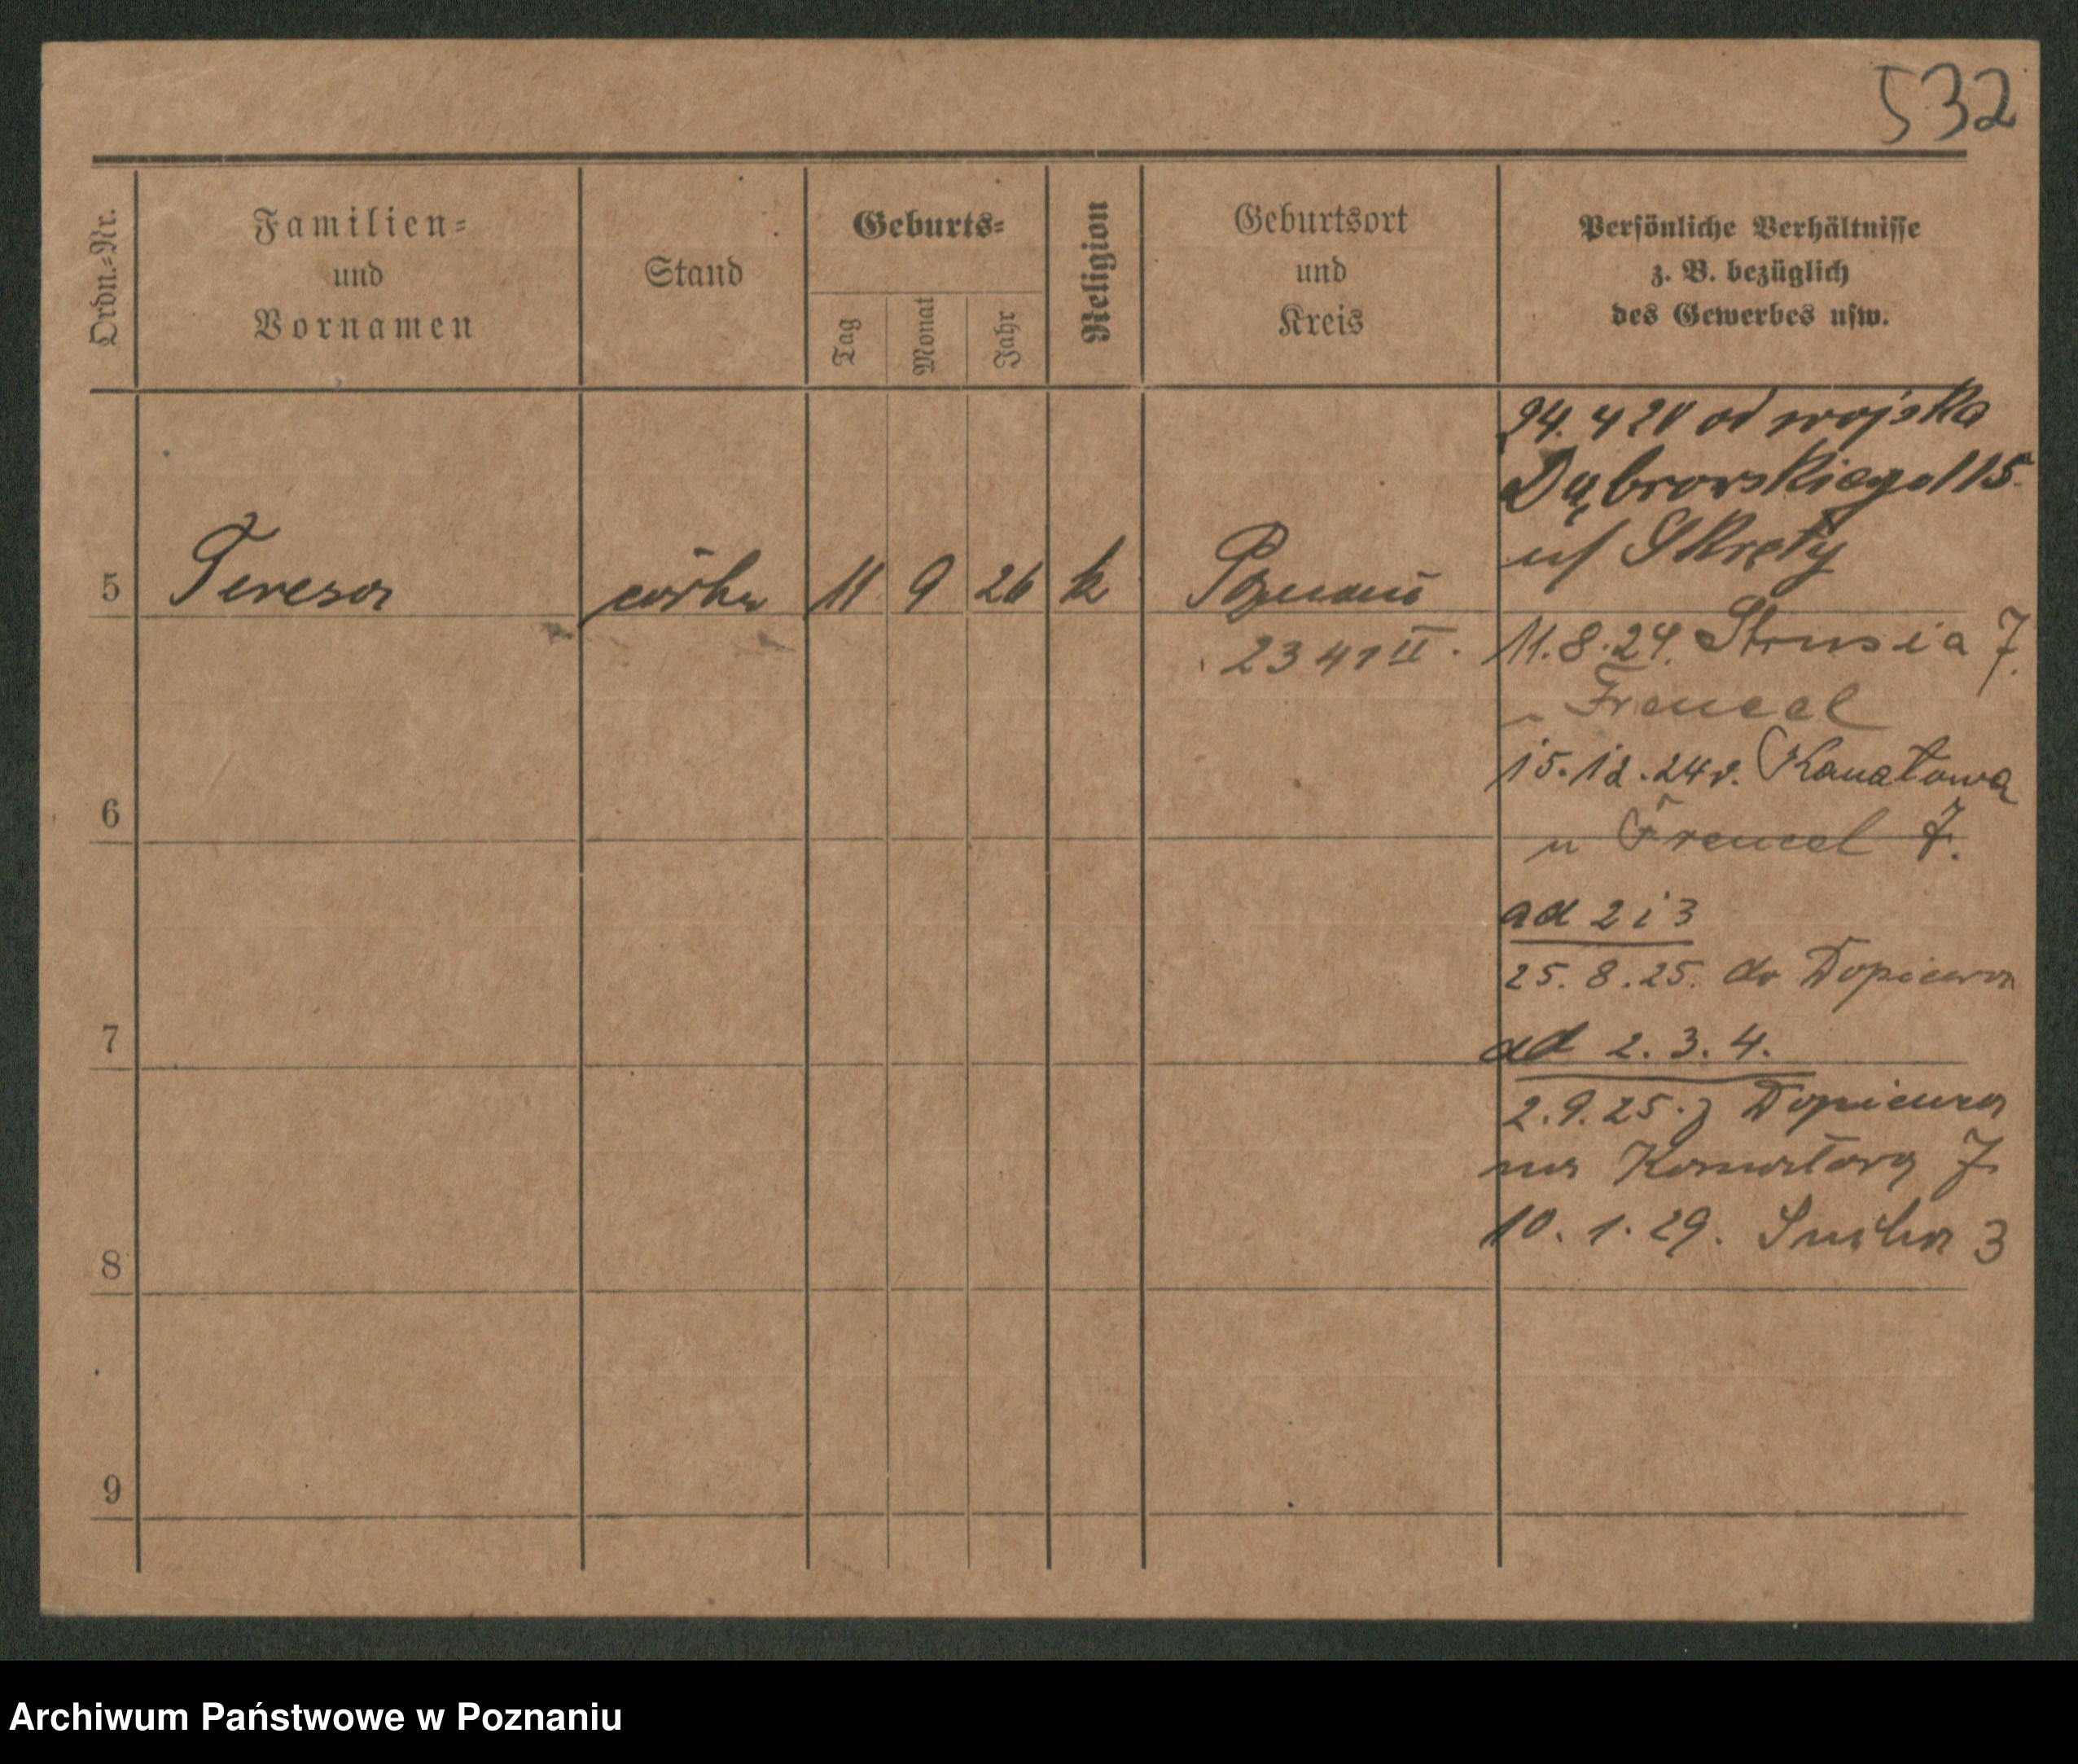 532
Ordn.=Nr.
Familien=
und
Vornamen
Stand
Geburts=
Tag
Monat
Jahr
Religion
Geburtsort
und
Kreis
Persönliche Verhältnisse
z. B. bezüglich
des Gewerbes usw.
24. 4 20 od wojska
Dąbrowskiego 115.
u/ Skręty
5 Teresa córka 11 9 26 k Poznań
2341 II.
11.8.24. Strusia 7.
u Frencel
15.12.24r. Kanałowa
6
u Frencel 7.
ad 2 i 3
25. 8. 25. do Dopiewa
7
ad 2. 3. 4.
2. 9. 25. z Dopiewa
na Kanałową 7.
10. 1. 29. 3
8
9
Archiwum Państwowe w Poznaniu